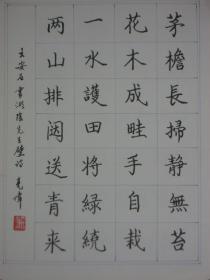 茅檐長掃靜無苔
花木成畦手自栽
一水護田將綠繞
两山排闼送青来
王安石書湖陰先生壁詩